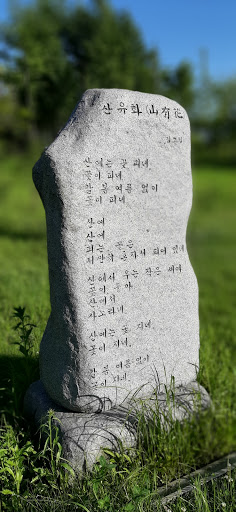 산유화 (山有花)
산에는 꽃 피네
꽃이 피네
갈 봄 여름 없이
꽃이 피네
산에
산에
피는 꽃은
저만치 혼자서 피어 있네
산에서 우는 작은 새여
꽃이 좋아
산에서
사노라네
산에는 꽃 지네
꽃이 지네
갈 봄 여름 없이
꽃이 지네